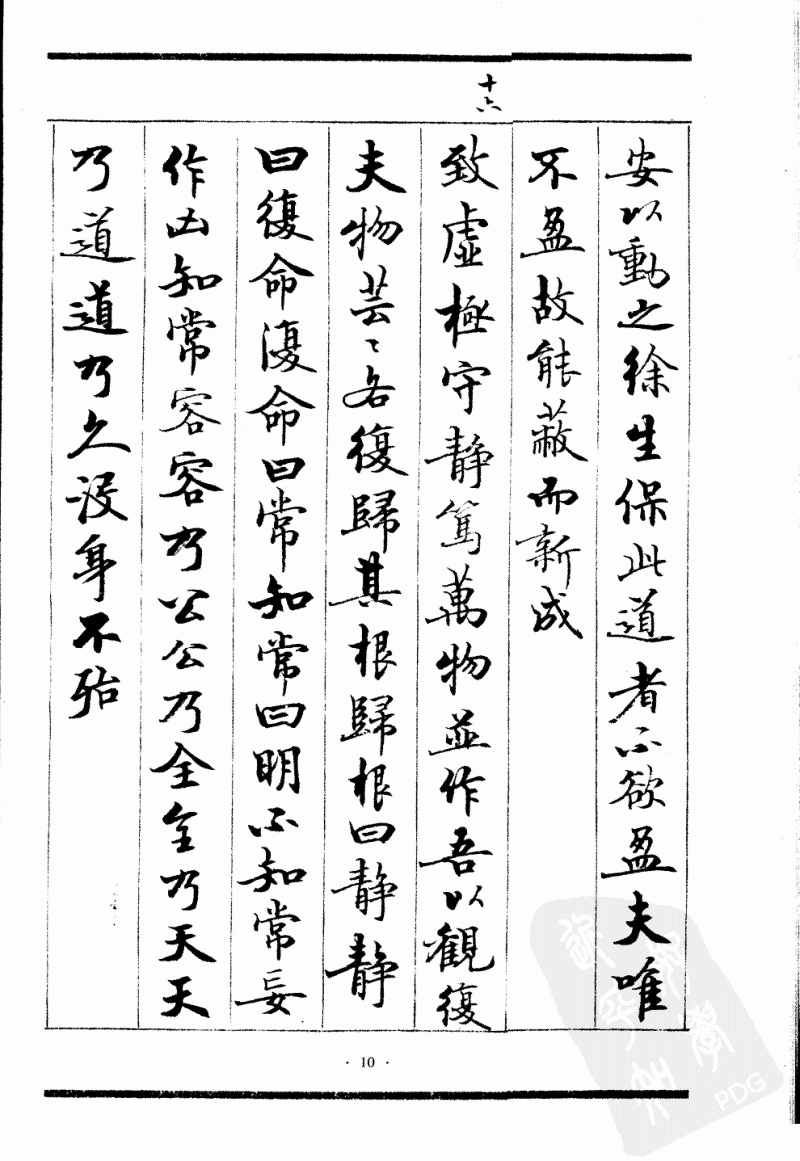 十六
安以動之徐生保此道者不欲盈夫唯
不盈故能蔽而新成
致虛極守靜篤萬物並作吾以觀復
夫物芸〻各復歸其根歸根曰靜靜
曰復命復命曰常知常曰明不知常妄
作凶知常容容乃公公乃全全乃天天
乃道道乃久沒身不殆
· 10 ·
PDG